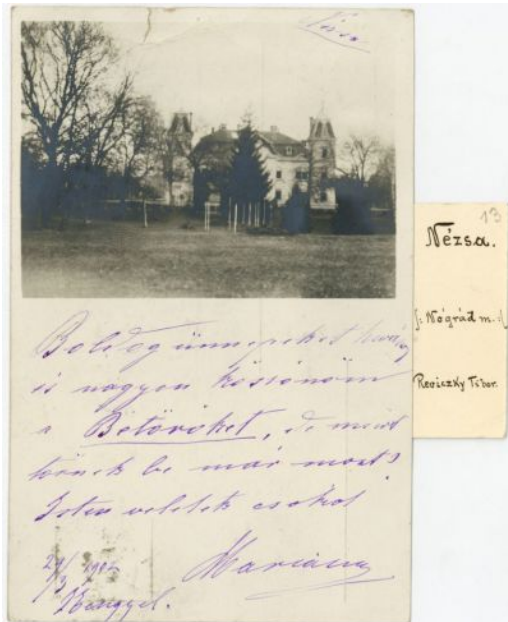 Nézsa
Boldog ünnepeket
is nagyon köszönöm
a Betörőket, de miért
törnek be már most?
Isten veletek csókol
Mariana
29/3 1902
13
Nézsa.
/: Nógrád m. :/
Reviczky Tibor.